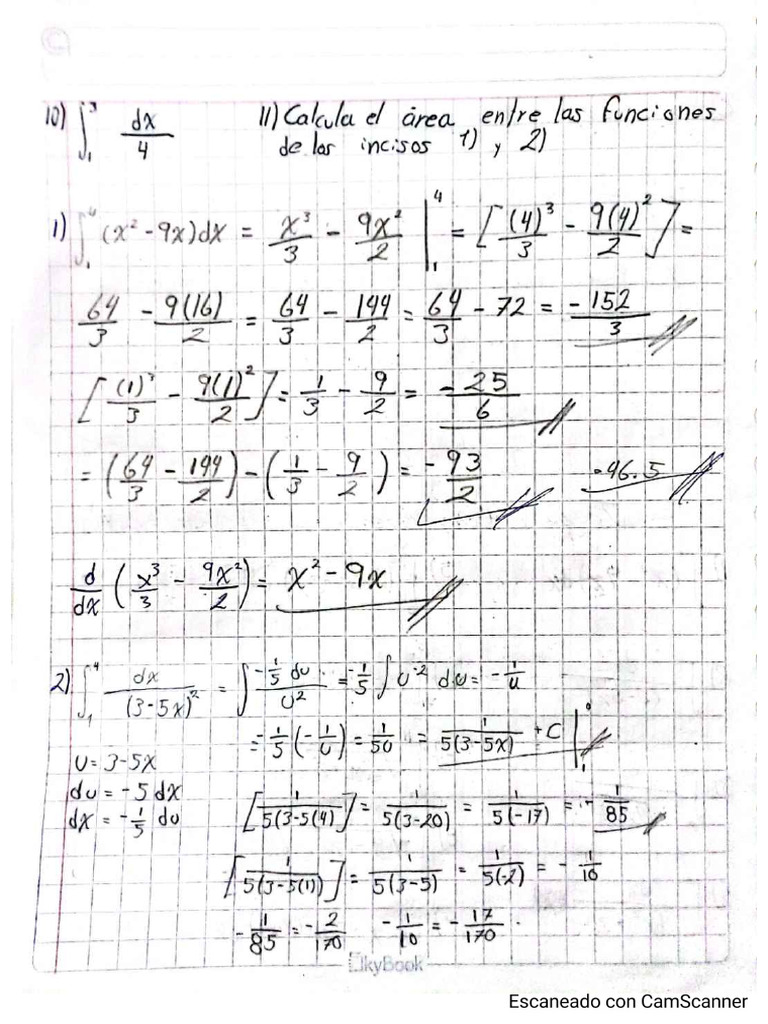 10) ∫₁³ dx/4
11) Calcula el área entre las funciones
de los incisos 1) y 2)
1) ∫₁⁴ (x² - 9x)dx = x³/3 - 9x²/2 |₁⁴ = [(4)³/3 - 9(4)²/2] =
64/3 - 9(16)/2 = 64/3 - 144/2 = 64/3 - 72 = -152/3
[(1)³/3 - 9(1)²/2] = 1/3 - 9/2 = -25/6
= (64/3 - 144/2) - (1/3 - 9/2) = -93/2 -46.5
d/dx (x³/3 - 9x²/2) = x² - 9x
2) ∫₁⁴ dx/(3-5x)² = ∫ -1/5 du/u² = -1/5 ∫ u⁻² du = -1/u
= -1/5 (-1/u) = 1/5u = 1/5(3-5x) + C |₁
u = 3-5x
du = -5 dx
dx = -1/5 du
[1/5(3-5(4)] = 1/5(3-20) = 1/5(-17) = -1/85
[1/5(3-5(1))] = 1/5(3-5) = 1/5(-2) = -1/10
-1/85 = -2/170 -1/10 = -17/170
SkyBook
Escaneado con CamScanner